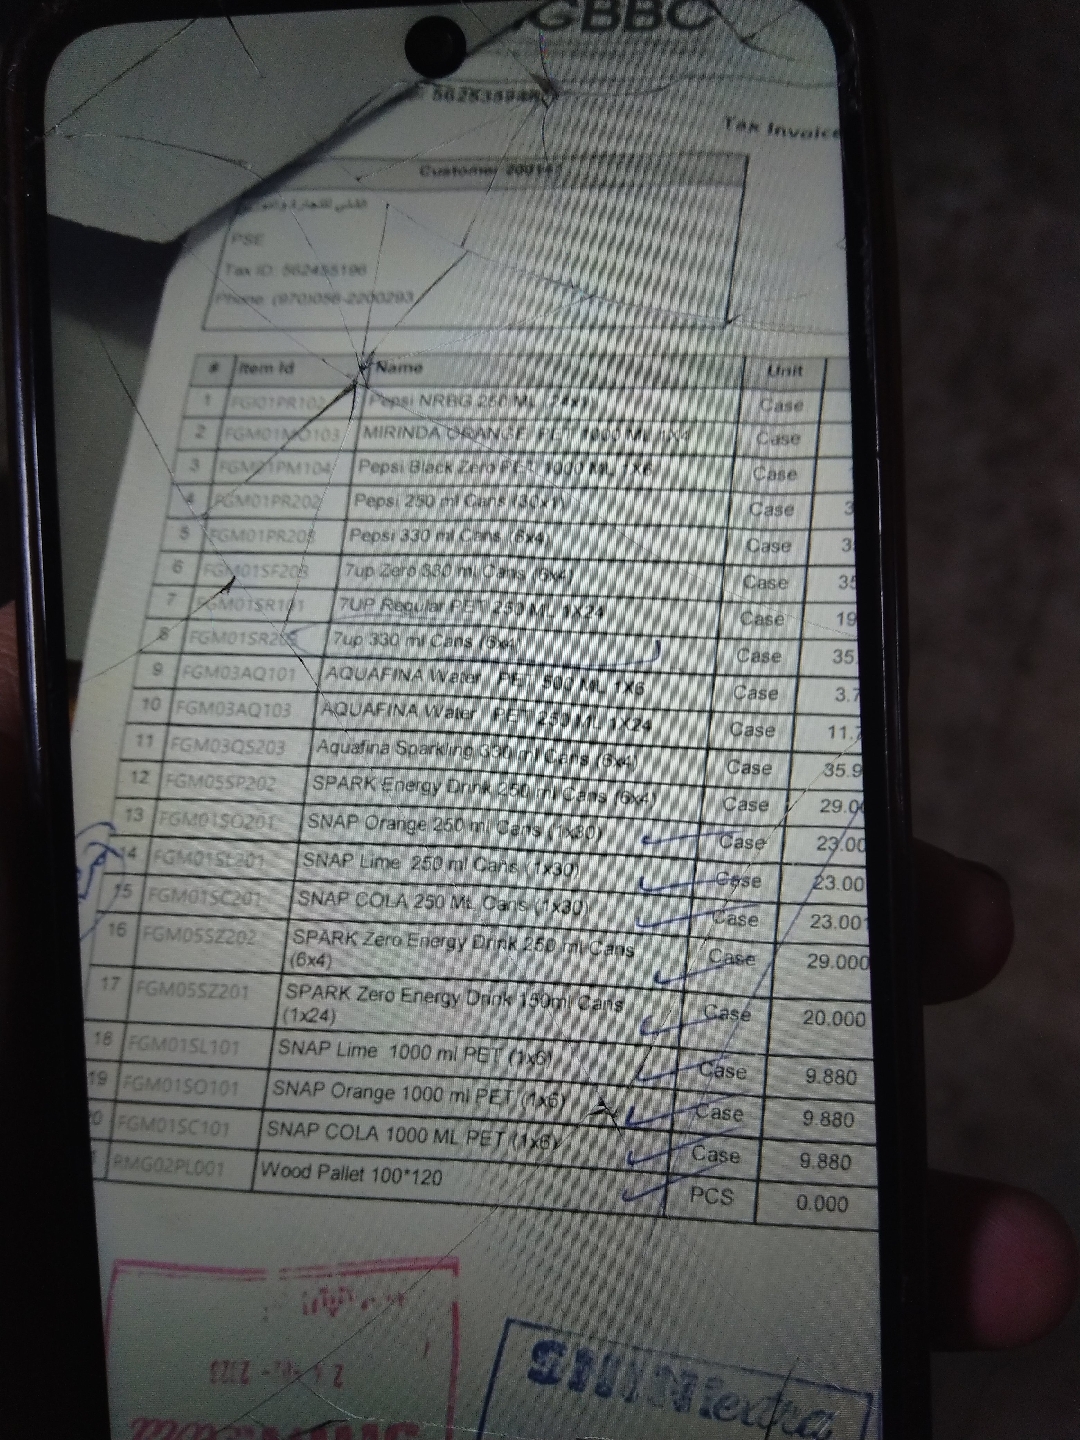 GBBC
Tax Invoice
Customer
PSE
Tax ID: 562455196
Phone: (970)056-2200293
# Item Id Name Unit
1 Pepsi NRBG 250 ML (24x1) Case
2 FGM01MO103 MIRINDA ORANGE PET 1000 ML 1X6 Case
3 FGM01PM104 Pepsi Black Zero PET 1000 ML 1X6 Case
4 FGM01PR202 Pepsi 250 ml Cans (30x1) Case 3
5 FGM01PR203 Pepsi 330 ml Cans (6x4) Case 3
6 FGM01SF203 7up Zero 330 ml Cans (6x4) Case 35
7 FGM01SR101 7UP Regular PET 250 ML 1X24 Case 19
8 FGM01SR203 7up 330 ml Cans (6x4) Case 35.
9 FGM03AQ101 AQUAFINA Water PET 500 ML 1X6 Case 3.7
10 FGM03AQ103 AQUAFINA Water PET 250 ML 1X24 Case 11.7
11 FGM03QS203 Aquafina Sparkling 330 ml Cans (6x4) Case 35.9
12 FGM05SP202 SPARK Energy Drink 250 ml Cans (6x4) Case 29.00
13 FGM01SO201 SNAP Orange 250 ml Cans (1x30) Case 23.00
14 FGM01SL201 SNAP Lime 250 ml Cans (1x30) Case 23.00
15 FGM01SC201 SNAP COLA 250 ML Cans (1x30) Case 23.00
16 FGM05SZ202 SPARK Zero Energy Drink 250 ml Cans Case 29.000
(6x4)
17 FGM05SZ201 SPARK Zero Energy Drink 150ml Cans Case 20.000
(1x24)
18 FGM01SL101 SNAP Lime 1000 ml PET (1x6) Case 9.880
19 FGM01SO101 SNAP Orange 1000 ml PET (1x6) Case 9.880
0 FGM01SC101 SNAP COLA 1000 ML PET (1x6) Case 9.880
1 RMG02PL001 Wood Pallet 100*120 PCS 0.000